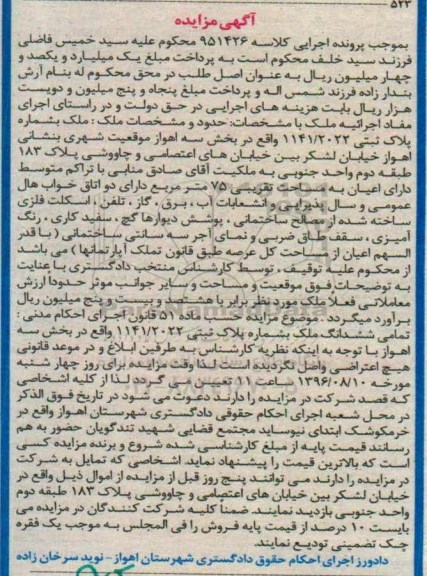 ۵۲۳
آگهی مزایده
بموجب پرونده اجرایی کلاسه ۹۵۱۴۲۶ محکوم علیه سید خمیس فاضلی
فرزند سید خلف محکوم است به پرداخت مبلغ یک میلیارد و یکصد و
چهار میلیون ریال به عنوان اصل طلب در محق محکوم له بنام آرش
بندار زاده فرزند شمس اله و پرداخت مبلغ پنجاه و پنج میلیون و دویست
هزار ریال بابت هزینه های اجرایی در حق دولت و در راستای اجرای
مفاد اجرائیه ملک با مشخصات: حدود و مشخصات ملک : ملک بشماره
پلاک ثبتی ۱۱۴۱/۲۰۲۲ واقع در بخش سه اهواز موقعیت شهری بنشانی
اهواز خیابان لشکر بین خیابان های اعتصامی و چاووشی پلاک ۱۸۳
طبقه دوم واحد جنوبی به ملکیت آقای صادق منابی با تراکم متوسط
دارای اعیان به مساحت تقریبی ۷۵ متر مربع دارای دو اتاق خواب هال
عمومی و سال پذیرایی و انشعابات آب ، برق ، گاز ، تلفن ، اسکلت فلزی
ساخته شده از مصالح ساختمانی . پوشش دیوارها گچ ، سفید کاری ، رنگ
آمیزی ، سقف طاق ضربی و نمای آجر سه سانتی ساختمانی ( با قدر
السهم اعیان از مساحت کل عرصه طبق قانون تملک آپارتمانها ) می باشد
از محکوم علیه توقیف ، توسط کارشناس منتخب دادگستری با عنایت
به توضیحات فوق موقعیت و مساحت و سایر جوانب موثر حدودا ارزش
معاملاتی فعلا ملک مورد نظر برابر با هشتصد و بیست و پنج میلیون ریال
برآورد میگردد . موضوع مزایده ماده ۵۱ قانون اجرای احکام مدنی :
تمامی ششدانگ ملک بشماره پلاک ثبتی ۱۱۴۱/۲۰۲۲ واقع در بخش سه
اهواز با توجه به اینکه نظریه کارشناس به طرفین ابلاغ و در موعد قانونی
هیچ اعتراضی واصل نگردیده است لذا وقت مزایده برای روز چهار شنبه
مورخه ۱۳۹۶/۰۸/۱۰ ساعت ۱۱ تعیین می گردد لذا از کلیه اشخاصی
که قصد شرکت در مزایده را دارند دعوت می شود در تاریخ فوق الذکر
در محل شعبه اجرای احکام حقوقی دادگستری شهرستان اهواز واقع در
خرمکوشک ابتدای نیوساید مجتمع قضایی شهید تندگویان حضور به هم
رسانند قیمت پایه از مبلغ کارشناسی شده شروع و برنده مزایده کسی
است که بالاترین قیمت را پیشنهاد نماید. اشخاصی که تمایل به شرکت
در مزایده را دارند می توانند پنج روز قبل از مزایده از اموال ذیل واقع در
خیابان لشکر بین خیابان های اعتصامی و چاووشی پلاک ۱۸۳ طبقه دوم
واحد جنوبی بازدید نمایند. ضمنا کلیه شرکت کنندگان در مزایده می
بایست ۱۰ درصد از قیمت پایه فروش را فی المجلس به موجب یک فقره
چک تضمینی تودیع نمایند
دادورز اجرای احکام حقوق دادگستری شهرستان اهواز - نوید سرخان زاده